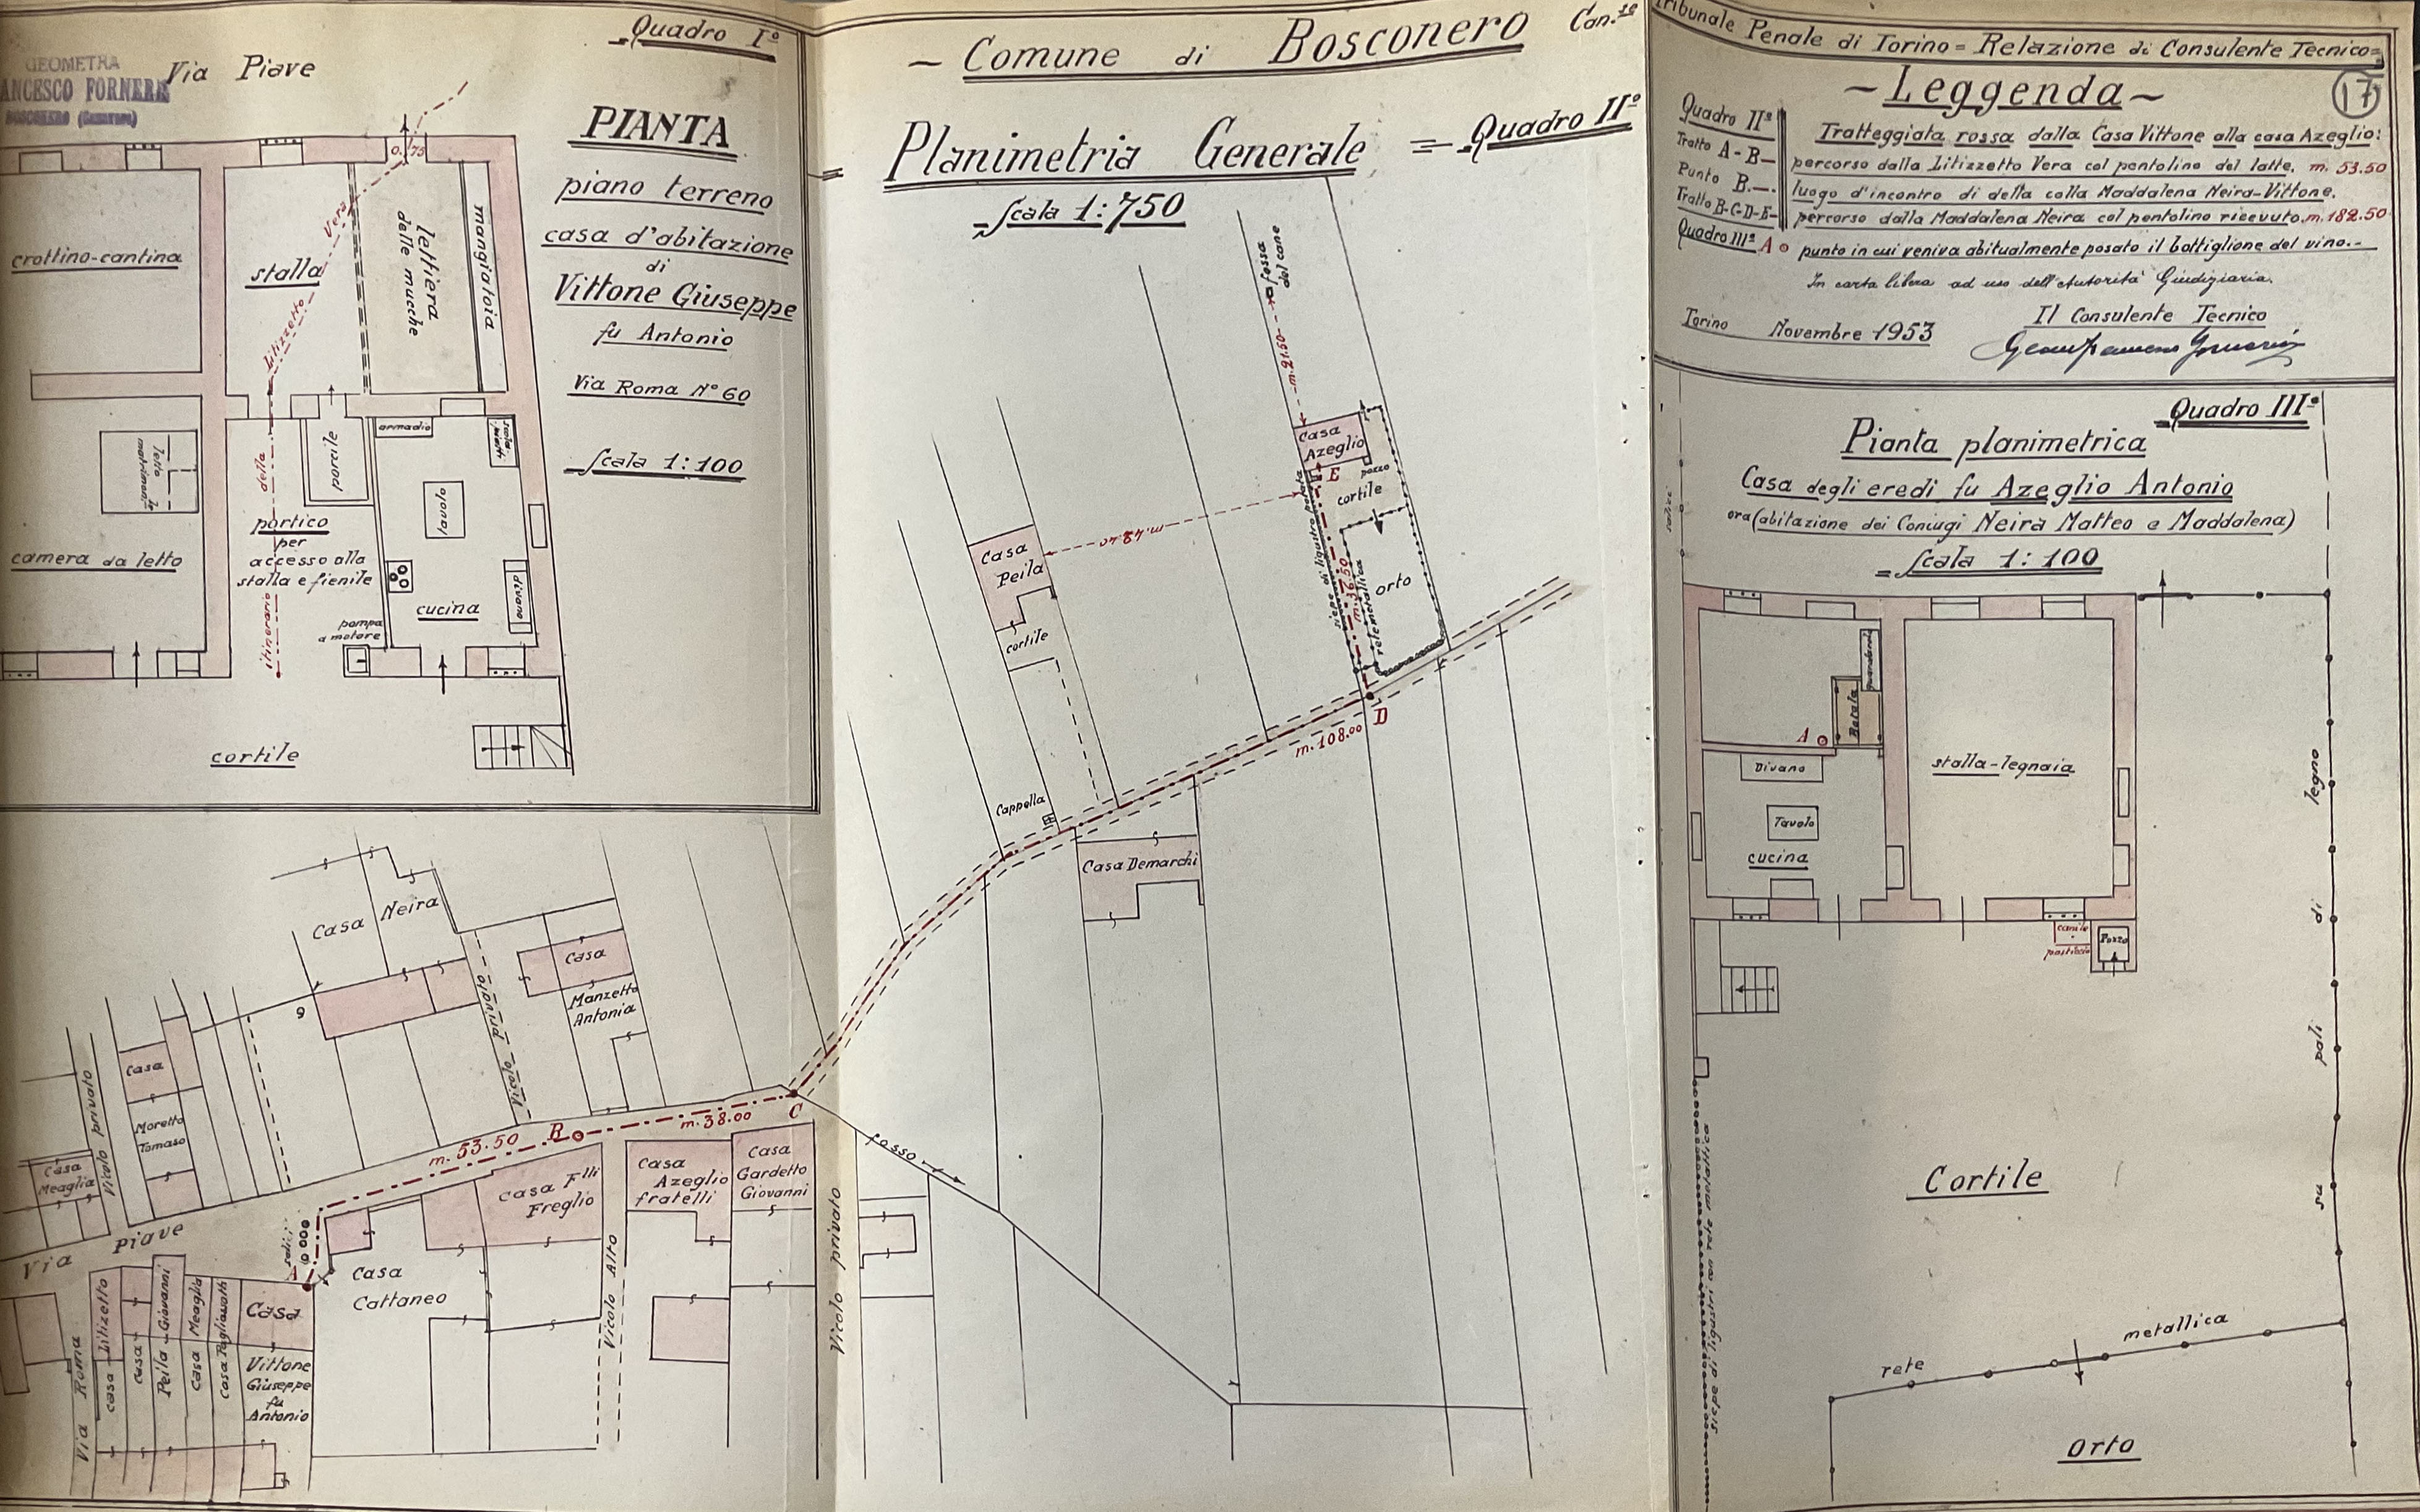 Quadro I°
GEOMETRA
ANCESCO FORNERIS
BOSCONERO (Canavese)
Via Piave
PIANTA
piano terreno
casa d'abitazione
di
Vittone Giuseppe
fu Antonio
Via Roma N° 60
Scala 1:100
0.75
crottino-cantina
stalla
lettiera
delle mucche
mangiatoia
itinerario della Litizzetto Vera
armadio
porcile
letto
matrimoniale
tavolo
portico
per
accesso alla
stalla e fienile
camera da letto
cucina
Divano
pompa
a motore
cortile
Comune di Bosconero Can.se
Planimetria Generale = Quadro II°
Scala 1:750
fossa
del cane
m. 21.50
Casa
Azeglio
E
pozzo
cortile
siepe di ligustro potata
m. 36.50
rete metallica
orto
m. 48.40
Casa
Peila
cortile
D
m. 108.00
Cappella
Casa Demarchi
Casa Neira
6
Casa
Manzetto
Antonia
Vicolo privato
Casa
Moretto
Tomaso
Vicolo privato
Casa
Meaglia
m. 53.50
B
m. 38.00
C
fosso
Casa F.lli
Freglio
Casa
Azeglio
fratelli
Casa
Gardetto
Giovanni
Via Piave
A
Casa
Cattaneo
Vicolo Alto
Vicolo privato
Via Roma
casa Litizzetto
casa
Peila Giovanni
casa Meaglia
Casa
Vittone
Giuseppe
fu
Antonio
Tribunale Penale di Torino = Relazione di Consulente Tecnico =
~ Leggenda ~
17
Quadro II° Tratteggiata rossa dalla Casa Vittone alla casa Azeglio:
Tratto A-B— percorso dalla Litizzetto Vera col pentolino del latte. m. 53.50
Punto B.—. luogo d'incontro di detta colla Maddalena Neira-Vittone.
Tratto B-C-D-E- percorso dalla Maddalena Neira col pentolino ricevuto. m. 182.50
Quadro III° A punto in cui veniva abitualmente posato il bottiglione del vino.-
In carta libera ad uso dell'Autorità Giudiziaria.
Torino Novembre 1953
Il Consulente Tecnico
Quadro III°
Pianta planimetrica
Casa degli eredi fu Azeglio Antonio
ora (abitazione dei Coniugi Neira Matteo e Maddalena)
Scala 1:100
Botola
A
Divano
Tavolo
cucina
stalla-legnaia
canile
posticcio
Pozzo
siepe di ligustri con rete metallica
Cortile
rete metallica
su pali di legno
Orto